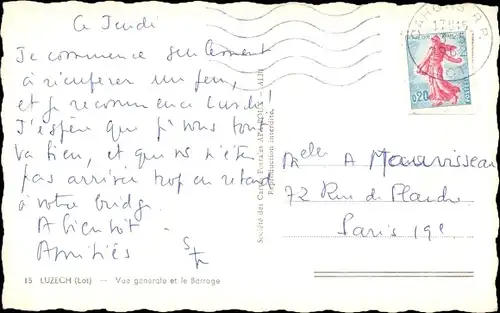 Ce Jeudi
Je commence seulement
à récupérer un peu,
et je recommence Lundi !
J'espère que pr vous tout
va bien, et que vs n'êtes
pas arrivée trop en retard
à votre bridge.
A bientôt.
Amitiés
Melle A Mauvisseau
72 Rue de Picpus
Paris 19e
CAHORS R.P.
17H15
0,20
Société des Cartes Postales APA-POUX - ALBI
Reproduction interdite.
15 LUZECH (Lot) — Vue générale et le Barrage